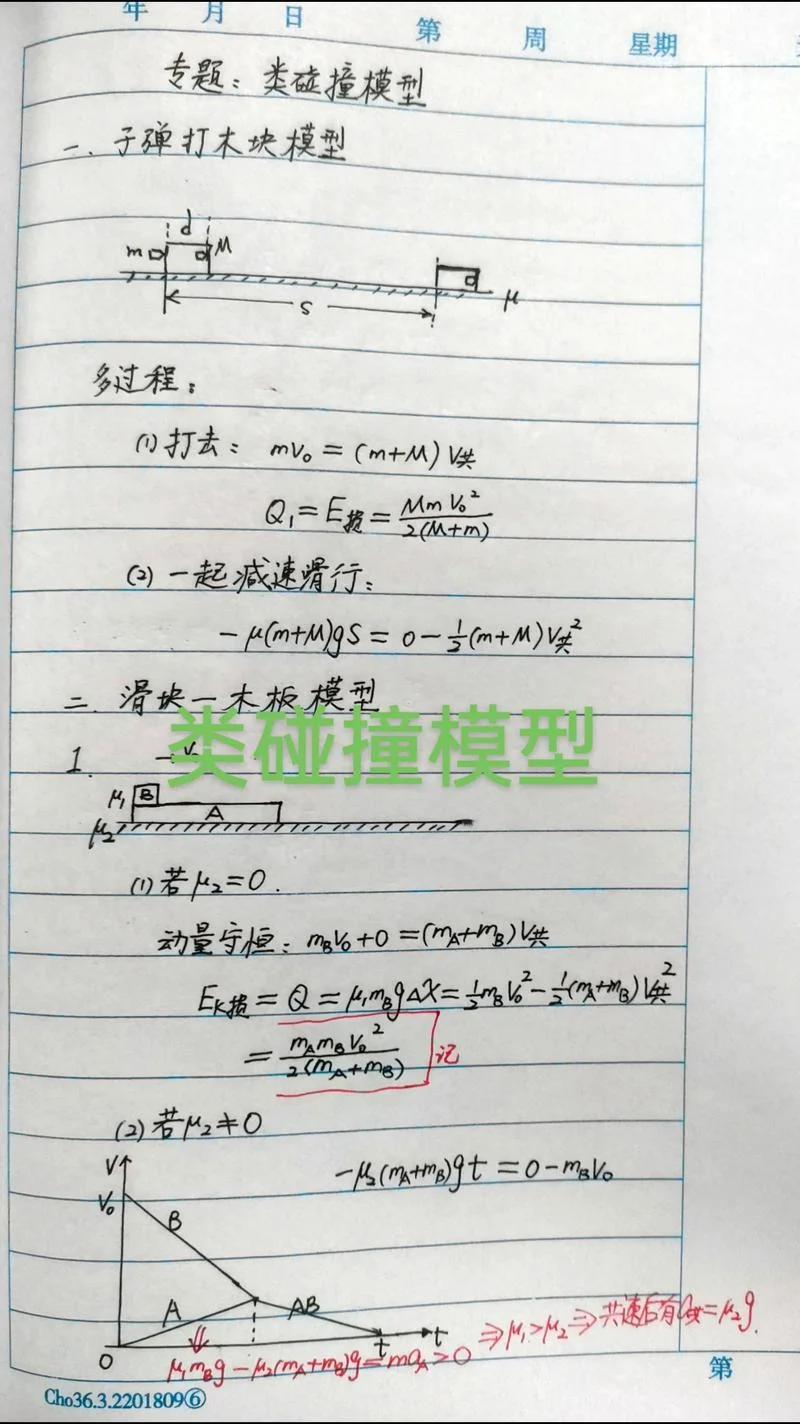 年 月 日 第 周 星期
专题：类碰撞模型
一. 子弹打木块模型
d
m M
S μ
多过程：
(1) 打击： mv₀ = (m+M) v共
Q₁ = E损 = Mmv₀²/2(M+m)
(2) 一起减速滑行：
-μ(m+M)gS = 0 - ½(m+M)v共²
二. 滑块一木板模型
类碰撞模型
1.
μ₁ B
A
μ₂
(1) 若μ₂=0.
动量守恒： mBv₀+0=(mA+mB)v共
EK损 = Q = μ₁mBgΔX = ½mBv₀² - ½(mA+mB)v共²
= mAmBv₀²/2(mA+mB) 记
(2) 若μ₂≠0
V
-μ₂(mA+mB)gt = 0-mBv₀
V₀
B
A AB
0 t t
μ₁mBg-μ₂(mA+mB)g=maA>0 ⇒μ₁>μ₂⇒共速后有a共=μ₂g.
第
Cho36.3.2201809⑥